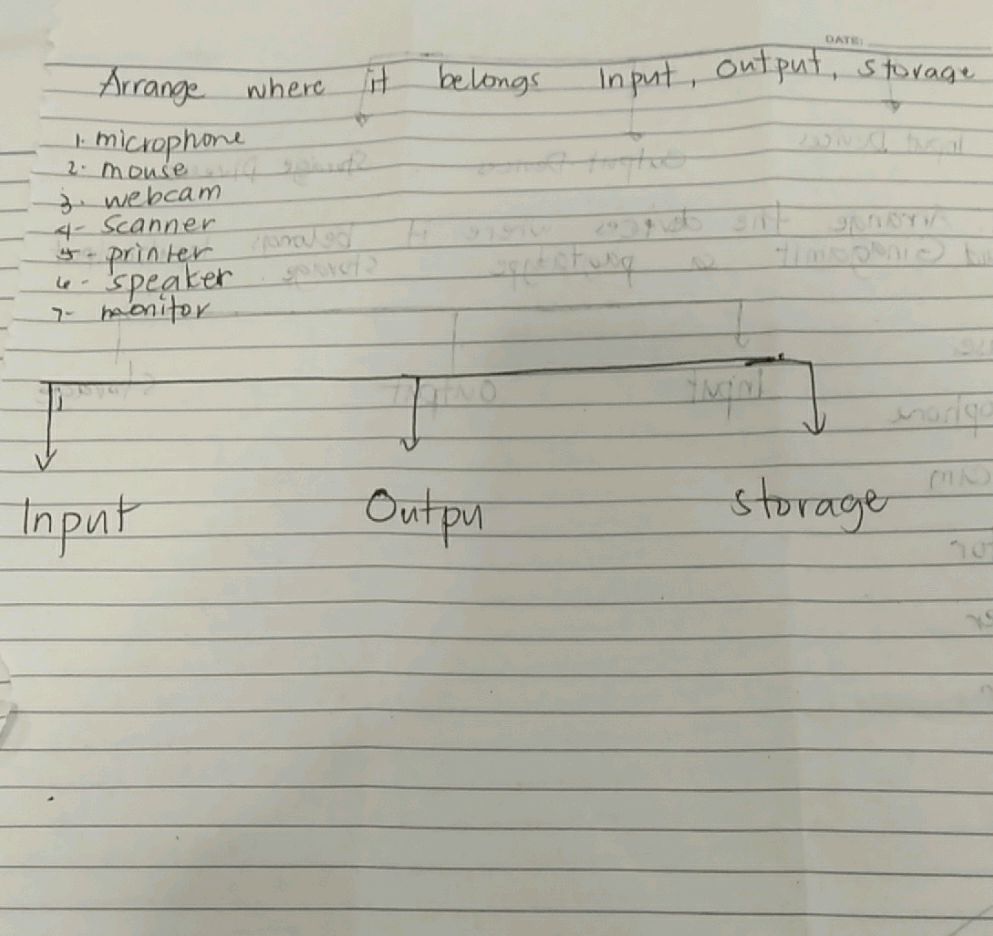 DATE:
Arrange where it belongs Input, Output, storage
1. microphone
2. mouse
3. webcam
4- scanner
5- printer
6- speaker
7- monitor
Input Outpu storage